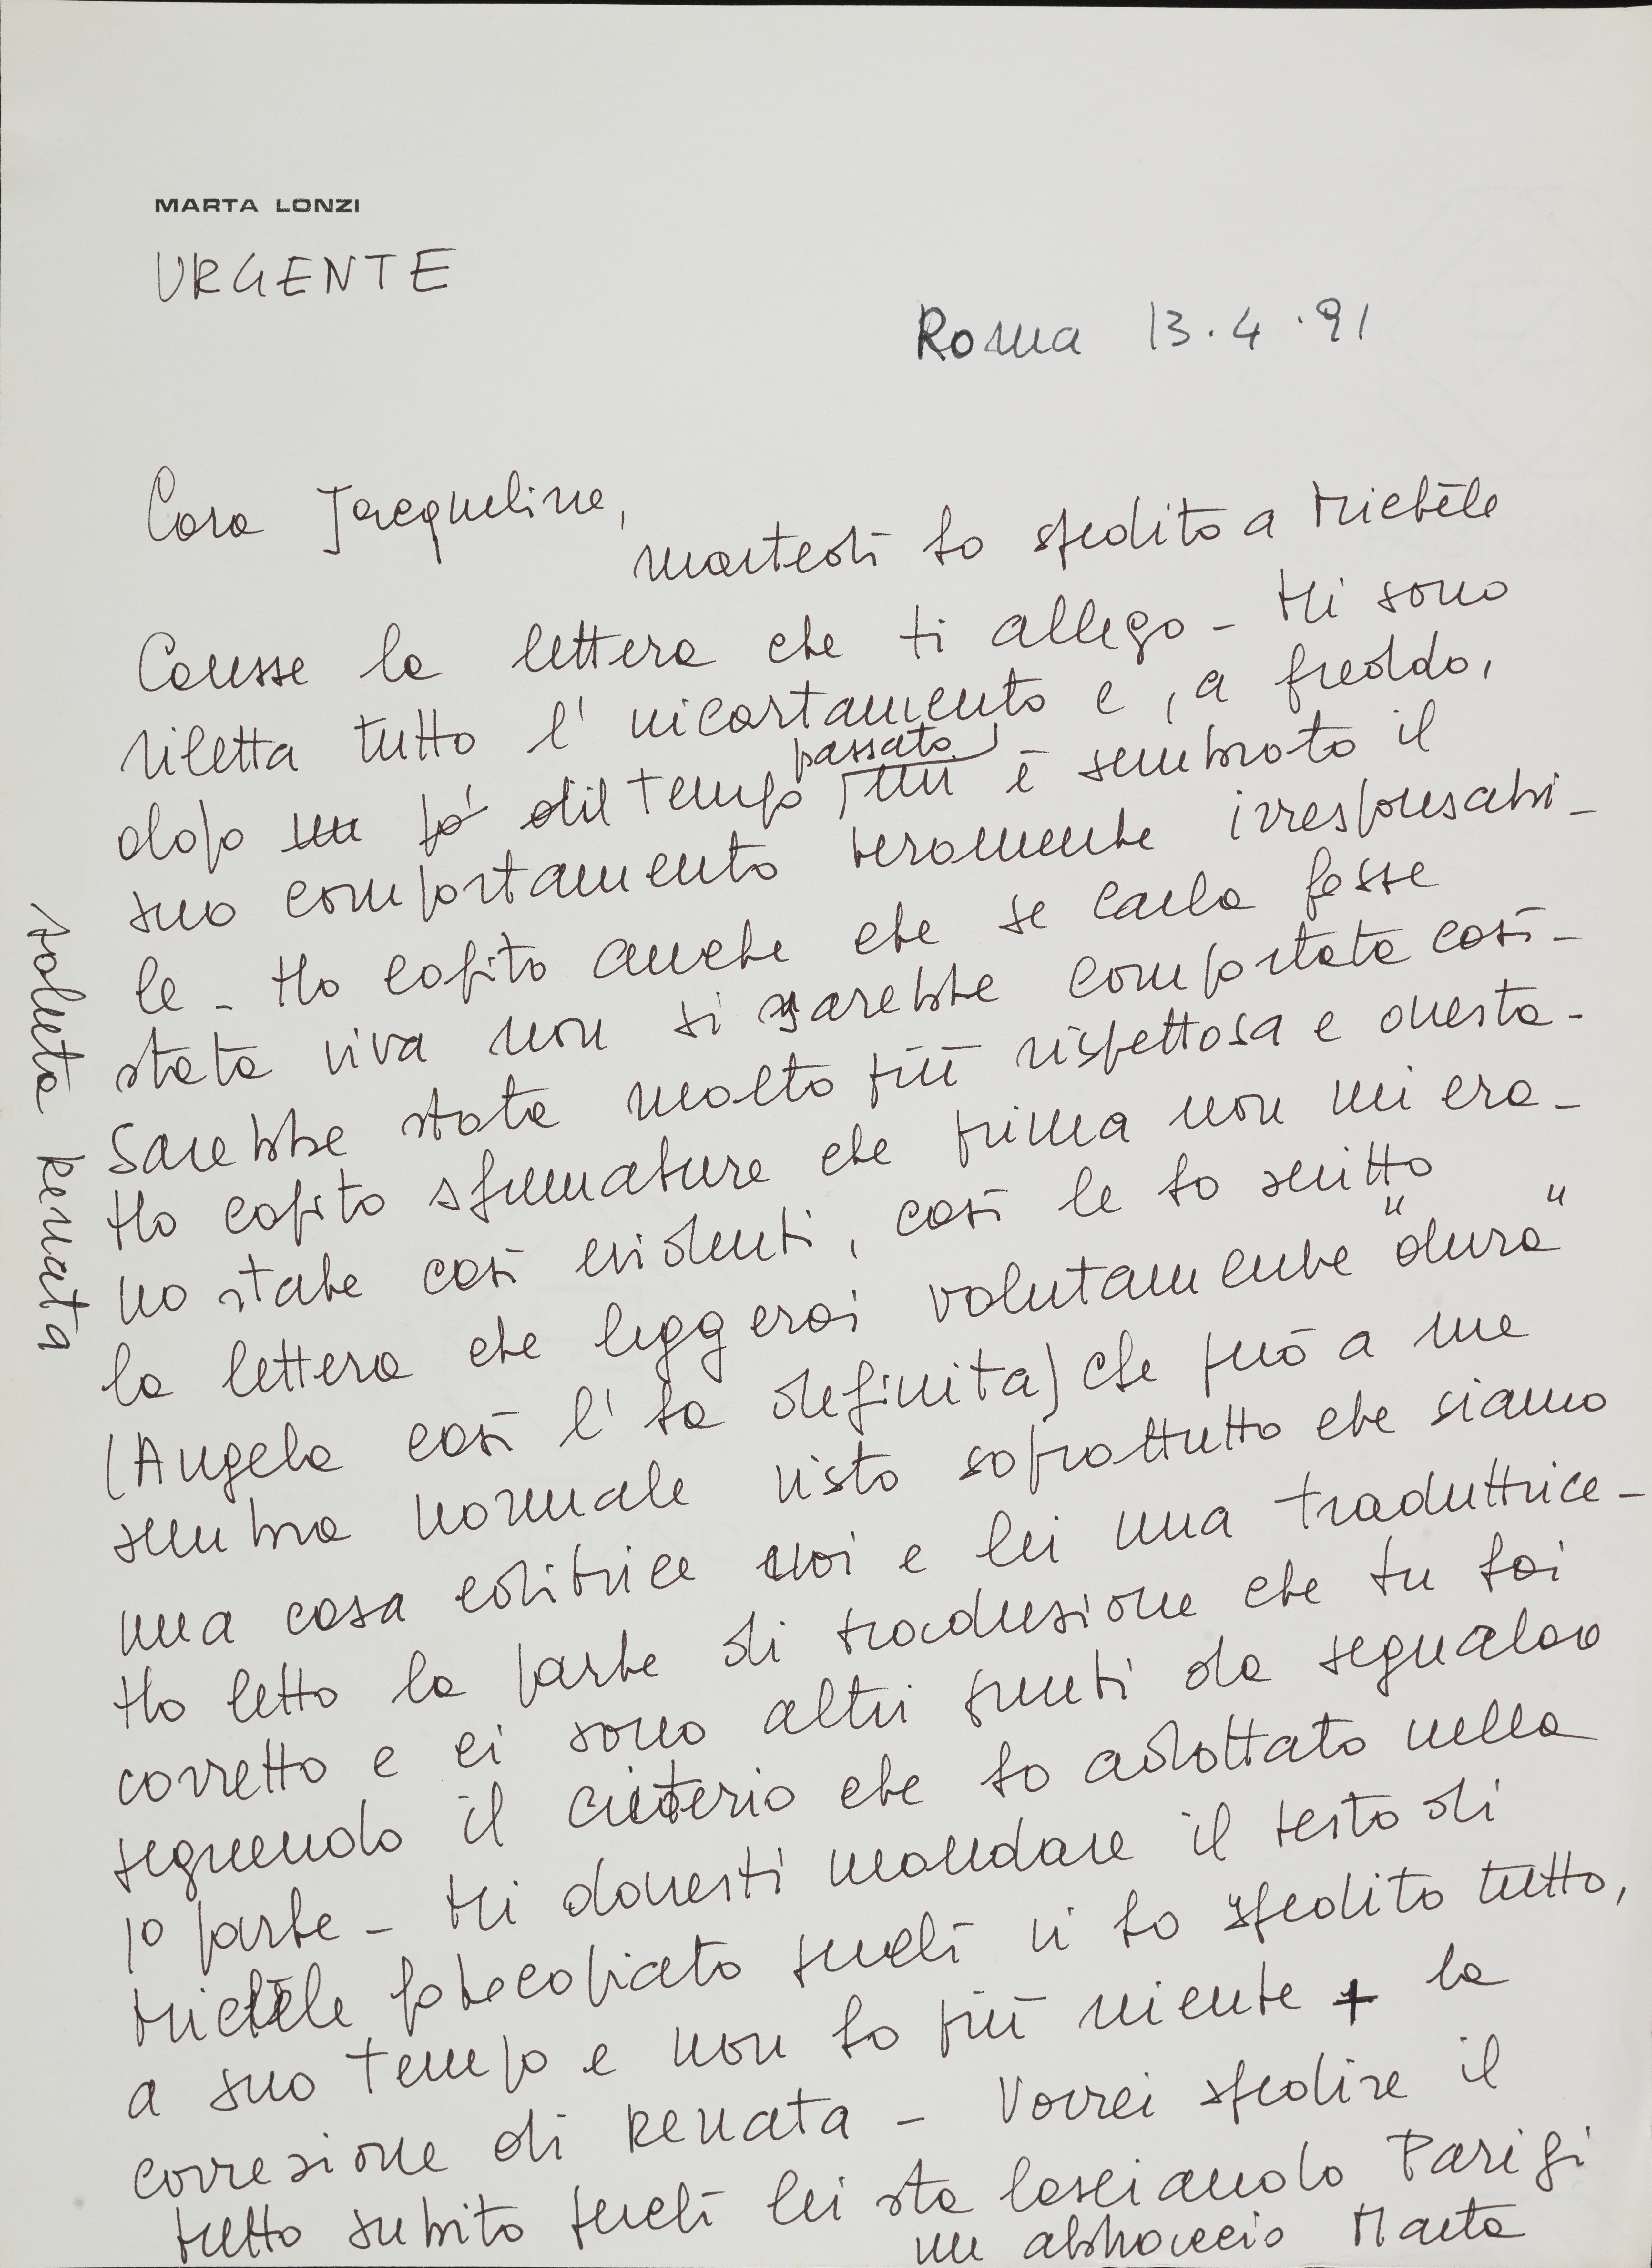 MARTA LONZI
URGENTE
Roma 13.4.91
Cara Jacqueline,
martedì ho spedito a Michèle
Causse la lettera che ti allego - Mi sono
riletta tutto l'incartamento e, a freddo,
dopo un pò dil tempo passato mi è sembrato il
suo comportamento veramente irresponsabi-
le - Ho capito anche che se Carla fosse
stata viva non si sarebbe comportata così -
Sarebbe stata molto più rispettosa e onesta -
Ho capito sfumature che prima non mi era-
no state così evidenti, così le ho scritto
la lettera che leggerai volutamente "dura"
(Angela così l'ha definita) che può a me
sembra normale visto soprattutto che siamo
una casa editrice noi e lei una traduttrice -
Ho letto la parte di traduzione che tu hai
corretto e ci sono altri punti da segnalare
seguendo il criterio che ho adottato nella
1º parte - Mi dovresti mandare il testo di
Michèle fotocopiato perchè vi ho spedito tutto,
a suo tempo e non ho più niente + la
correzione di Renata - Vorrei spedire il
tutto subito perchè lei sta lasciando Parigi
un abbraccio Marta
saluta Renata